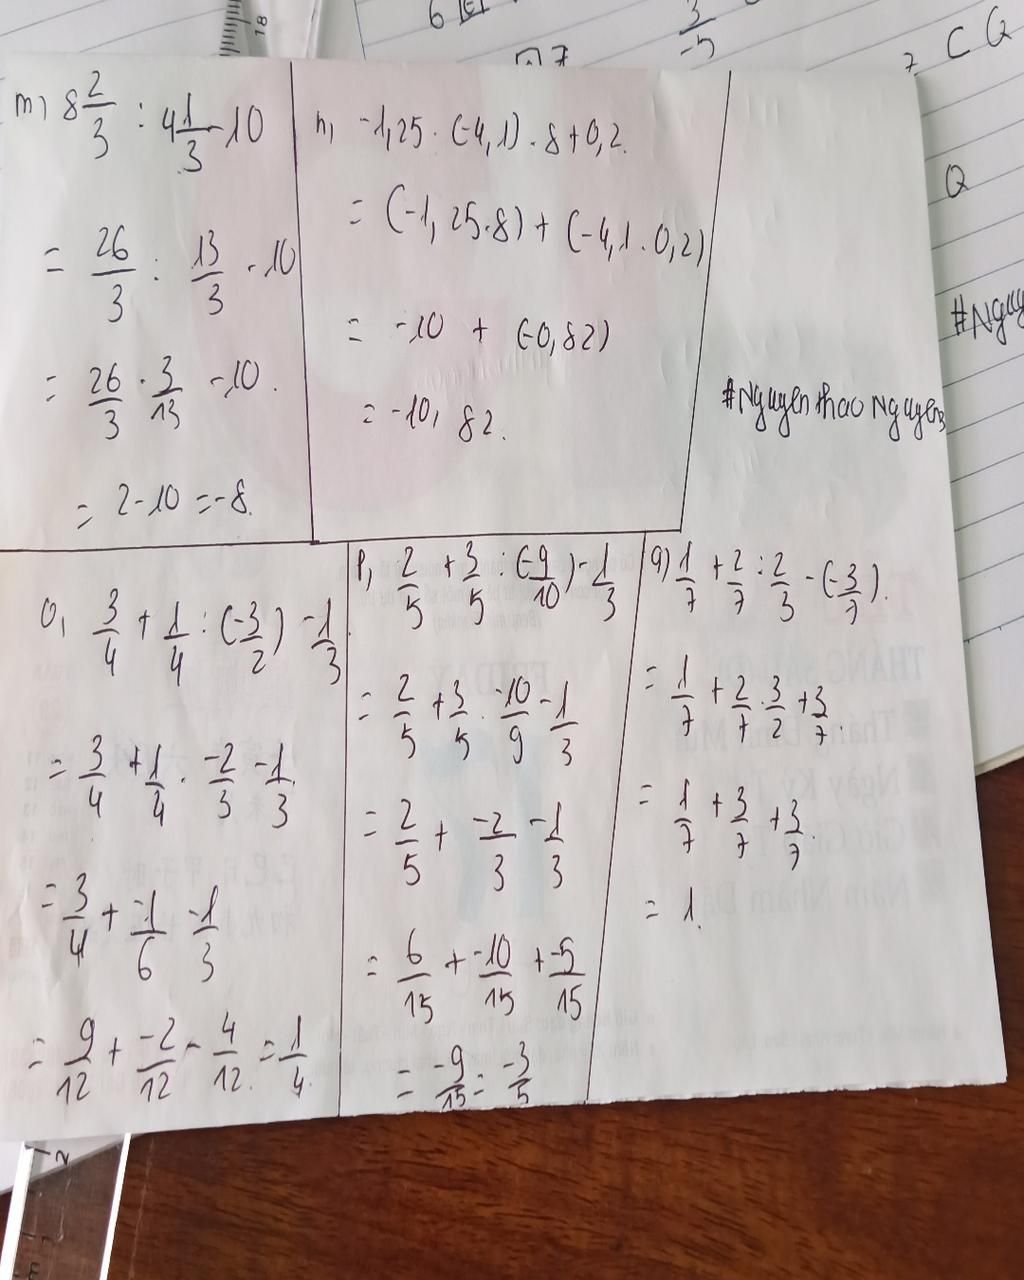 6
[C]
7
3/-5
7 C Q
18
Q
#Nguy
m, 8 2/3 : 4 1/3 - 10
= 26/3 : 13/3 - 10
= 26/3 . 3/13 - 10.
= 2 - 10 = -8.
n, -1,25 . (-4,1) . 8 + 0,2.
= (-1,25.8) + (-4,1.0,2)
= -10 + (-0,82)
= -10,82.
#Nguyenthao Nguyen
o, 3/4 + 1/4 : (-3/2) - 1/3
= 3/4 + 1/4 . -2/3 - 1/3.
= 3/4 + -1/6 - 1/3
= 9/12 + -2/12 - 4/12 = 1/4.
p, 2/5 + 3/5 : (-9/10) - 1/3
= 2/5 + 3/5 . -10/9 - 1/3
= 2/5 + -2/3 - 1/3
= 6/15 + -10/15 + -5/15
= -9/15 = -3/5
q) 1/7 + 2/7 : 2/3 - (-3/7).
= 1/7 + 2/7 . 3/2 + 3/7.
= 1/7 + 3/7 + 3/7.
= 1.